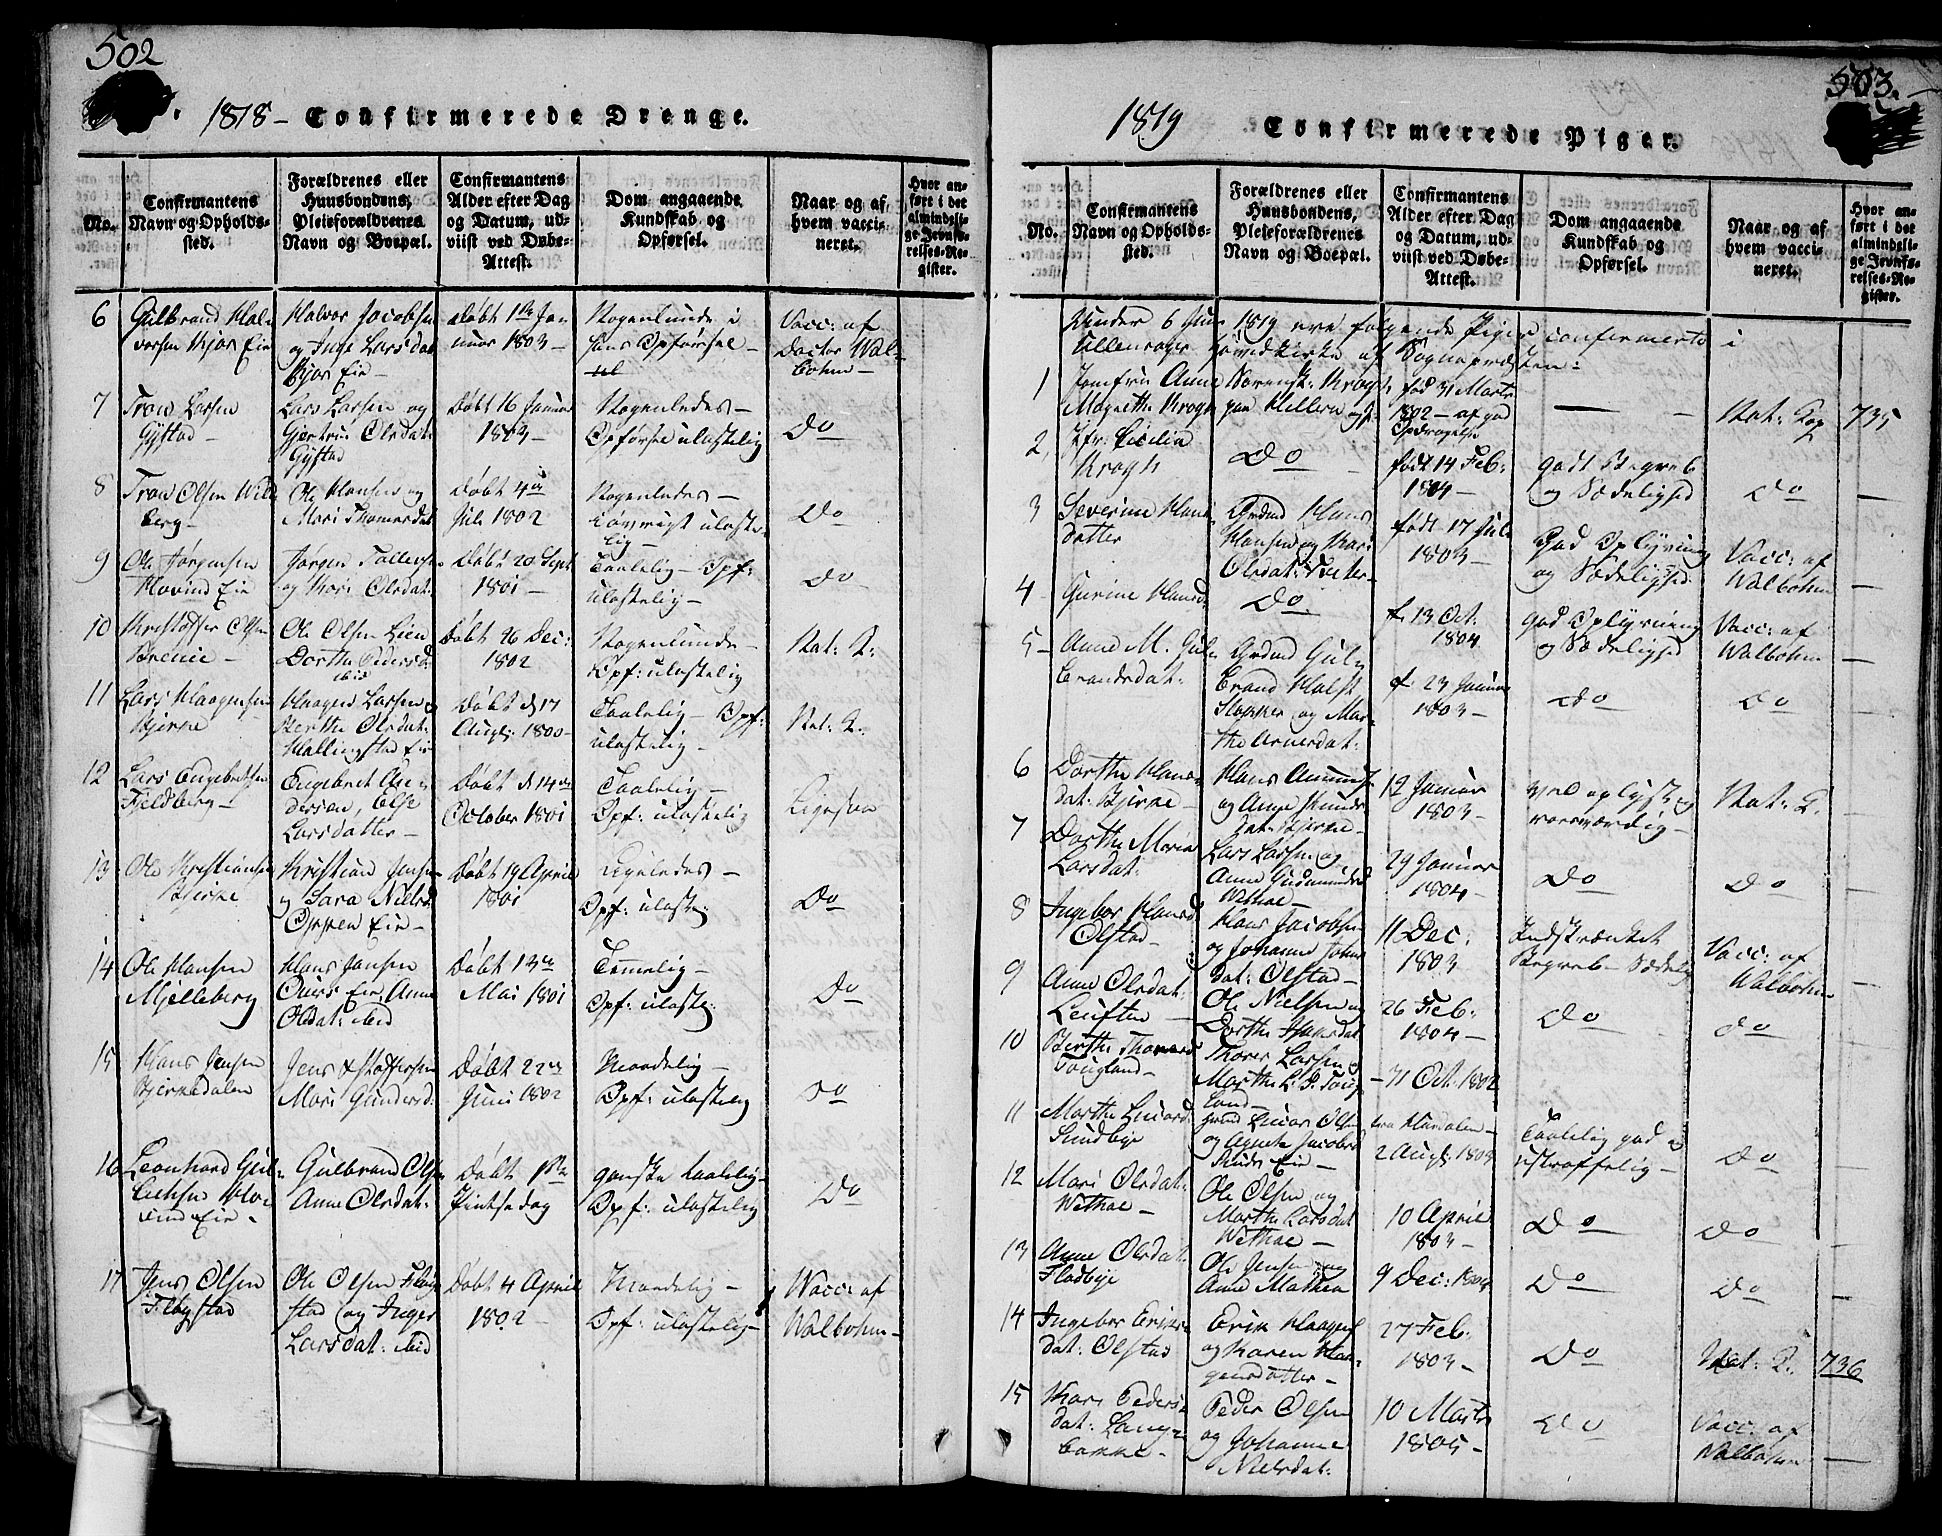 502
1818 – Confirmerede Drenge.
No.
Confirmantens
Navn og Opholds-
sted.
Forældrenes eller
Huusbondens,
Pleieforældrenes
Navn og Boepæl.
Confirmantens
Alder efter Dag
og Datum, ud-
viist ved Døbe-
Attest.
Dom angaaende
Kundskab og
Opførsel.
Naar og af
hvem vacci-
neret.
Hvor an-
ført i det
almindeli-
ge Jevnfø-
relses-Re-
gister.
6
Gulbrand Hal-
vorsen Kjos Eie
Halvor Jacobsen
og Inge Larsdat
Kjos Eie –
Døbt
1803 –
Nogenlunde i
hans Opførsel –
Vacc: af
Doctor Wal-
bohm –
7
Tron Larsen
Gystad –
Lars Larsen og
Olsdat:
Gystad
Døbt 16 Januar
1803 –
Nogenledes –
Opførsel ulastelig
Do
8
Tron Olsen
berg –
Ole Hansen og
Mari Thomasdat
Døbt 4de
Juli 1802
Nogenledes –
iøvrigt ulaste-
lig –
Do
9
Ole Jørgensen
Hovind Eie
Jørgen
og Kari Olsdat:
Døbt 20 Sept
1801 –
Taalelig – Opf:
ulastelig –
Do
10
Kristoffer Olsen
Ole Olsen Lien
Dorthe Pedersd
ibid
Døbt 26 Dec:
1802
Nogenlunde –
Opf: ulastelig
Nat: K:
11
Lars Haagensen
Bjerke
Haagen Larsen
Berthe Olsdat:
Hallingstad Eie
Døbt d 17
Aug: 1800 –
Taalelig – Opf:
ulastelig –
Nat: K.
12
Lars Engebretsen
Fjeldberg –
Engebret An-
dersen, Else
Larsdatter –
Døbt d 14de
October 1801
Taalelig –
Opf: ulastelig
Ligesaa
13
Ole Kristiansen
Bjerke
Kristian Jensen
og Sara Nielsd
Oppen Eie –
Døbt 19 April
1801
Opf: ulaste:
Do
14
Ole Hansen
Mjelleberg
Hans Jansen
Eie, Anne
Olsdat: ibid
Døbt 13de
Mai 1801
Temmelig –
Opf: ulaste:
Do
15
Hans Jensen
Bjerkedalen
Jens Kristoffersen
Mari Gundersd.
Døbt 22de
Juni 1802
Maadelig –
Opf: ulastelig
Do
16
Leonhard Gul-
Eie –
Gulbrand Olsen
Anne Olsdat:
Døbt 1ste
Pintsedag
ganske taalelig –
Opf: ulastelig
Do
17
Jens Olsen
Fløgstad
Ole Olsen Fløg-
stad og Inger
Larsdat: ibid
Døbt 4 April
1802 –
Maadelig –
Opf: ulastelig –
Vacc: af
Walbohm –
503.
1819 Confirmerede Piger.
No.
Confirmantens
Navn og Opholds-
sted.
Forældrenes eller
Huusbondens,
Pleieforældrenes
Navn og Boepæl.
Confirmantens
Alder efter Dag
og Datum, ud-
viist ved Døbe-
Attest.
Dom angaaende
Kundskab og
Opførsel.
Naar og af
hvem vacci-
neret.
Hvor an-
ført i det
almindeli-
ge Jevnfø-
relses-Re-
gister.
6 Juni 1819 ere følgende Piger confirmerte i
Ullensager Hovedkirke af Sognepræsten:
1
Jomfru Anne
Magrethe Krogh
Sørensk: Krogh
paa
fød 31 Marts
1802 – af god
Opdragelse
Nat: Kop
735
2
Jfr: Cicilia
Krogh
Do
født 14 Feb:
1804 –
godt Begreb
og Sædelighed
Do
3
Severine Hans-
datter
Hans
Hansen og Kari
Olsdat:
født 17 Juli
1803 –
God Oplysning
og Sædelighed
Vacc: af
Walbohm
4
Gurine Hansd.
Do
f. 13 Oct.
1804
god Oplysning
og Sædelighed
Vacc: af
Walbohm
5 –
Anne M. Gul-
brandsdat:
Gul-
brand Halst
og Mar-
the Arnesdat:
f. 23 Januar
1803 –
Do
Do
6
Dorthe Hans-
dat: Bjerke –
Hans Amunds
og Anne Knuds-
dat: Bjerke –
12 Januar
1803 –
vel oplyst og
Nat: K.
7
Dorthe Maria
Larsdat:
Lars Larsen og
Anne Gudmundsd
Wethae –
29 Januar
1804 –
Do
Do
8
Ingebor Hansd.
Olstad –
Hans Jacobsen
og Johanne Johns
dat: Olstad –
11 Dec:
1803 –
Indskrænket
Begreb – Sædelig
Vacc: af
Walbohm
9
Anne Olsdat:
Ole Nielsen og
Dorthe Hansdat
26 Feb:
1804 –
Do
Do
10
Berthe Thorersd
Thorer Larsen
Marthe L: D:
– 31 Oct: 1802
11
Marthe
Sundbye
Olsen
og Agnete Jacobsd
Eie –
2 Aug: 1803
Taalelig god
ustraffelig –
Do
12
Mari Olsdat:
Wethae –
Ole Olsen og
Marthe Larsdat
Wethae –
10 April
1803 –
Do
Do
13
Anne Olsdat:
Fladbye
Ole Jensen og
Anne
9 Dec: 1804
Do
Do
14
Ingebor Eriks-
dat: Olstad
Erik Haagens
og Karen Haa-
gensdatter –
27 Feb:
1803 –
Do
Nat: K.
736
15
Kari Peders-
dat: Lang-
bakke –
Peder Olsen
og Johanne
Nielsdat:
10 Marts
1805 –
Do
Vacc: af
Walbohm